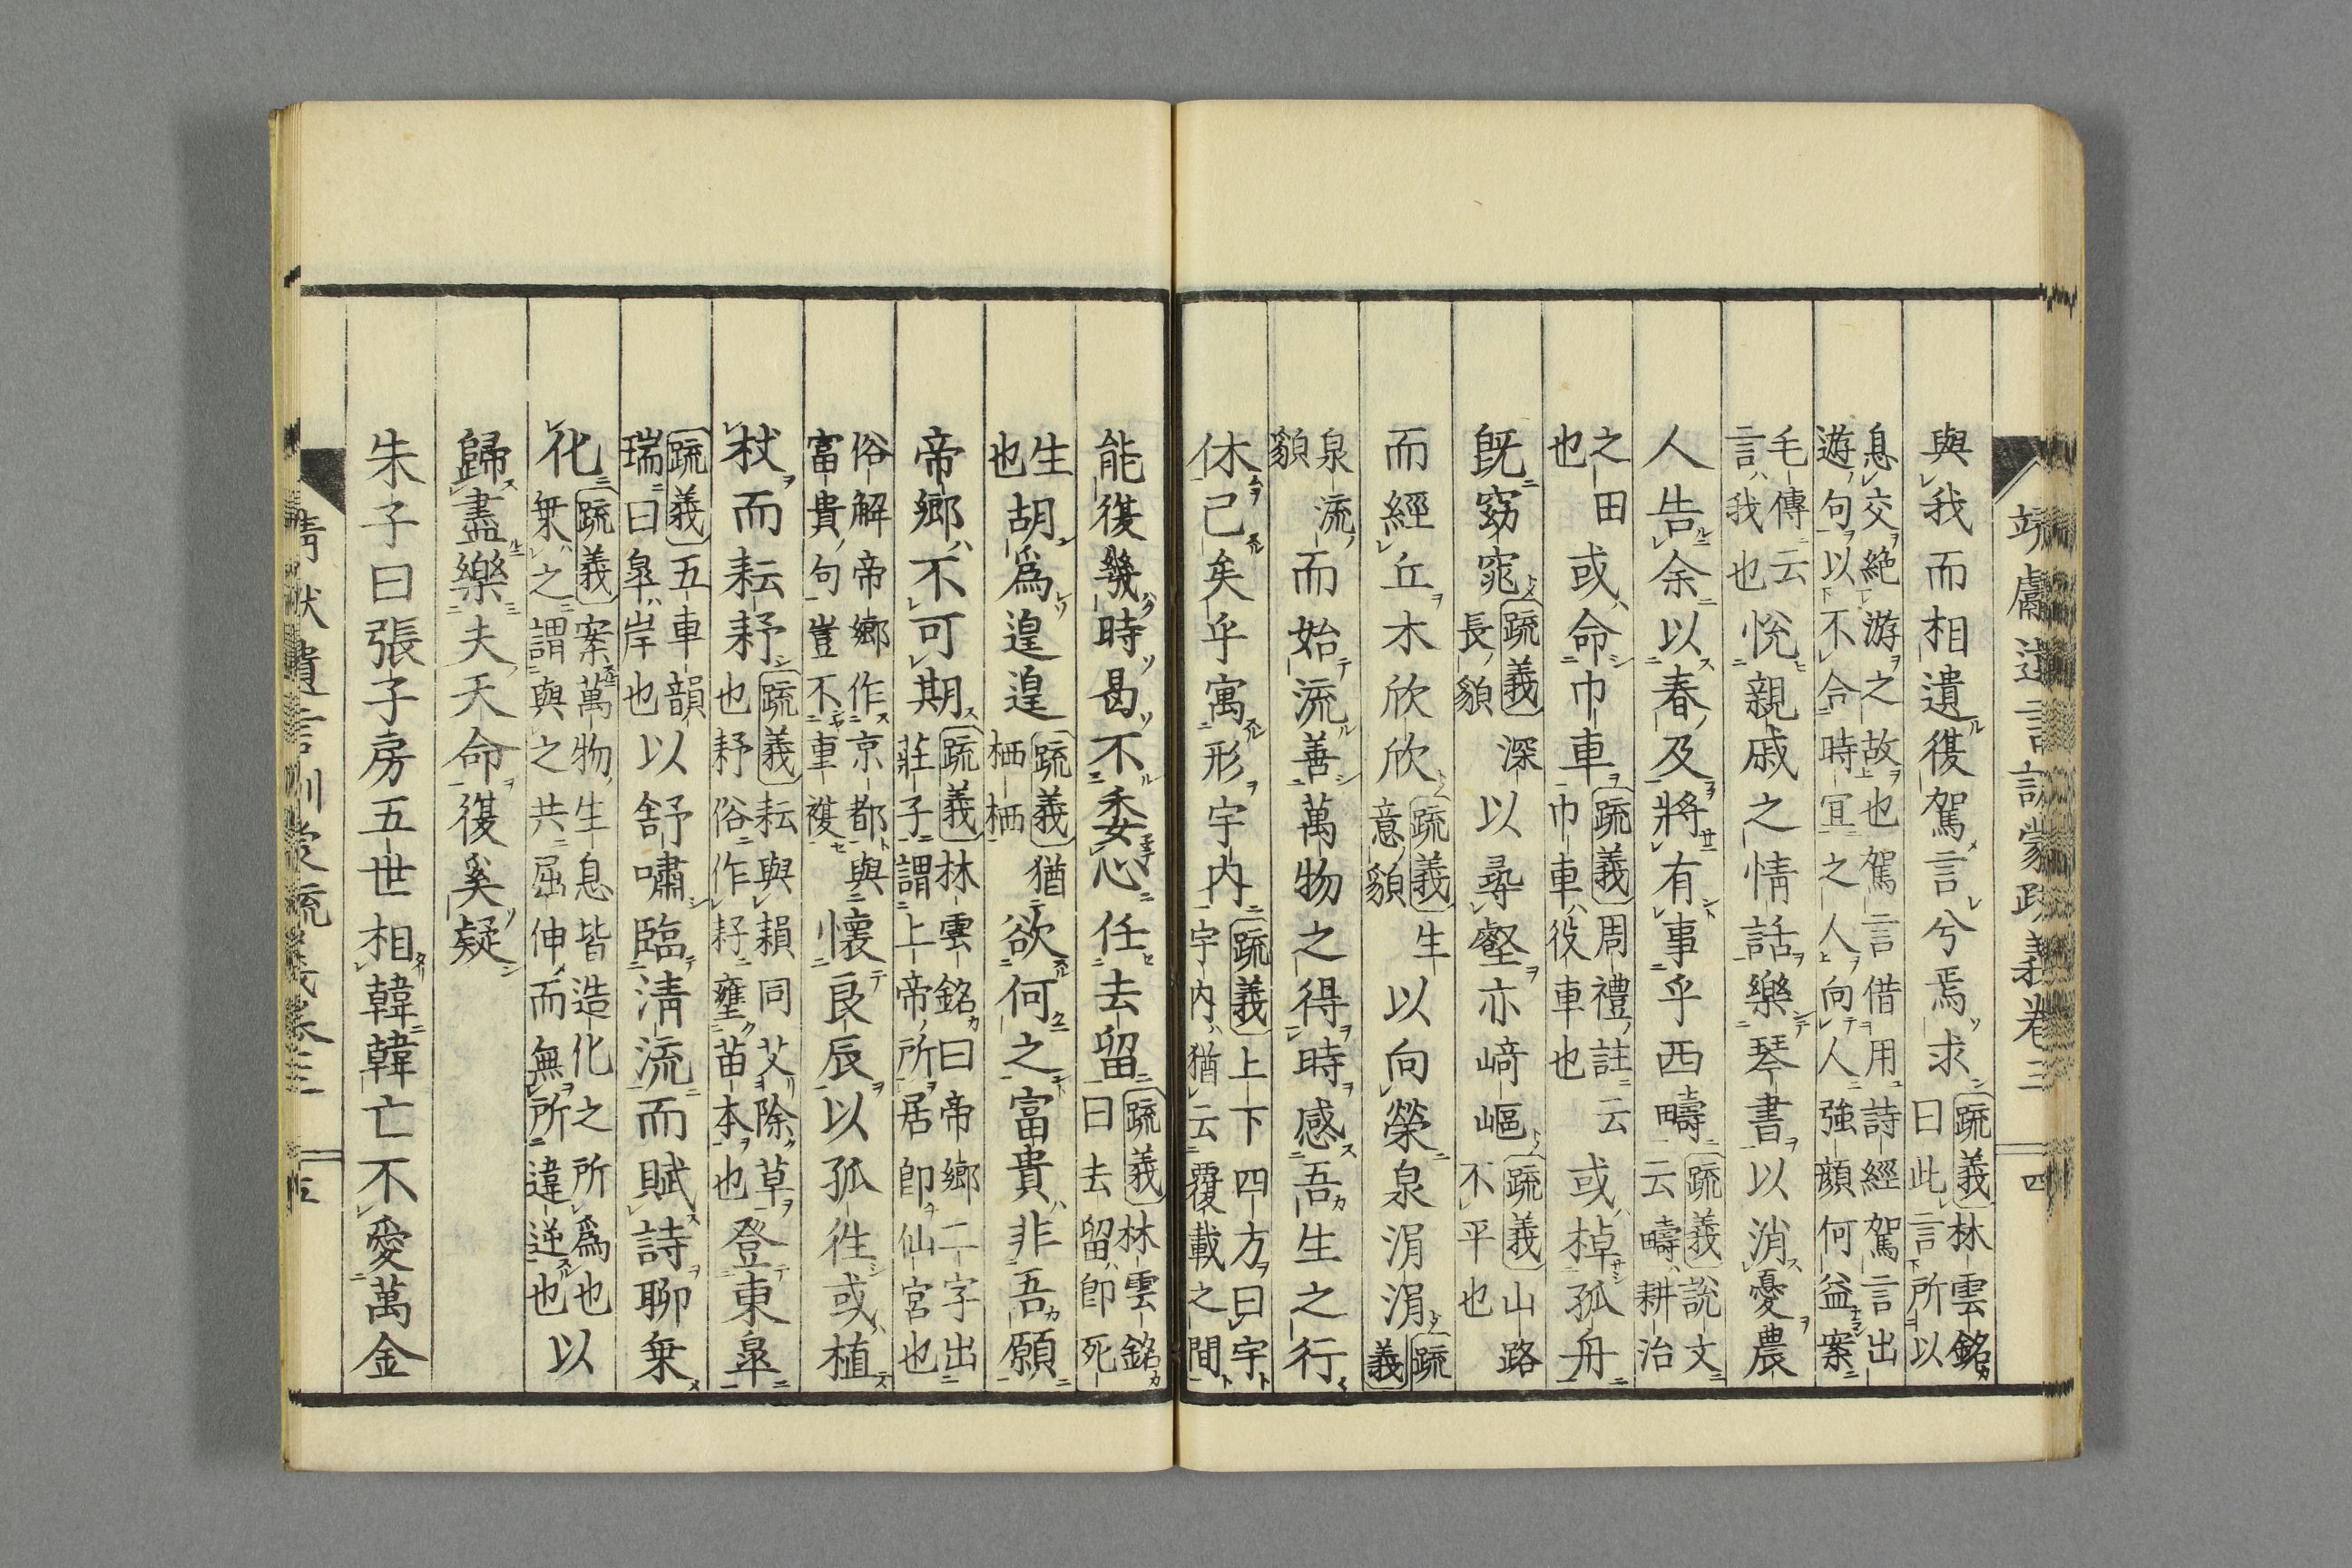 靖獻遺言訓蒙疏義卷三 四
與我而相遺復駕言兮焉求疏義林雲銘曰此言所以
息交絶游之故也駕言借用詩經駕言出遊句以不合時宜之人向人強顔何益案
毛傳云言我也悅親戚之情話樂琴書以消憂農
人告余以春及將有事乎西疇疏義說文云疇耕治
之田也或命巾車疏義周禮註云巾車役車也或棹孤舟
既窈窕疏義深長貌以尋壑亦崎嶇疏義山路不平也
而經丘木欣欣疏義生意貌以向榮泉涓涓疏義
泉流貌而始流善萬物之得時感吾生之行
休已矣乎寓形宇内疏義上下四方曰宇宇内猶云覆載之間
能復幾時曷不委心任去留疏義林雲銘曰去留即死
生也胡爲遑遑疏義猶栖栖欲何之富貴非吾願
帝鄉不可期疏義林雲銘曰帝鄉二字出莊子謂上帝所居即仙宮也
俗解帝鄉作京都與富貴句豈不重複懷良辰以孤往或植
杖而耘耔疏義耘與䅇同艾除草也耔俗作籽壅苗本也登東皐
疏義五車韻瑞曰皐岸也以舒嘯臨清流而賦詩聊乗
化疏義案萬物生息皆造化之所爲也乗之謂與之共屈伸而無所違逆也以
歸盡樂夫天命復奚疑
朱子曰張子房五世相韓韓亡不愛萬金
靖獻遺言訓蒙疏義卷三 五